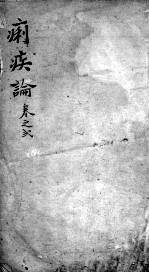 痢疾論卷之弐